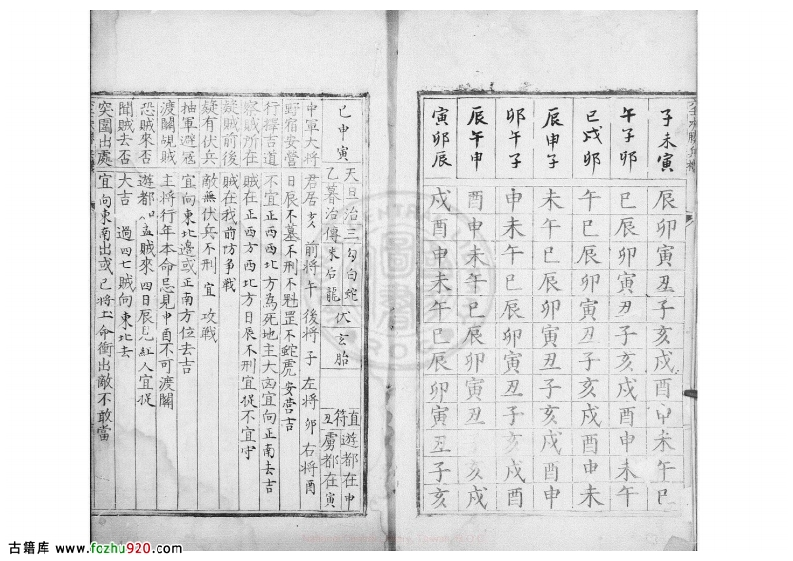 子未寅 辰卯寅丑子亥戌酉申未午巳
午子卯 巳辰卯寅丑子亥戌酉申未午
巳戌卯 午巳辰卯寅丑子亥戌酉申未
辰申子 未午巳辰卯寅丑子亥戌酉申
卯午子 申未午巳辰卯寅丑子亥戌酉
辰午申 酉申未午巳辰卯寅丑 亥戌
寅卯辰 戌酉申未午巳辰卯寅丑子亥
巳申寅
天旦治三勾白蛇
乙暮治傳朱后龍
伏玄胎
直符丑
遊都在申
虜都在寅
中軍大將 君居亥 前將午 後將子 左將卯 右將酉
野宿安營 日辰不墓不刑不魁罡不蛇虎安營吉
行擇古道 不宜正西西北方為死地主大凶宜向正南去吉
察賊所在 賊在正西方西北方日辰不刑宜從不宜守
疑賊前後 賊在我前防爭戰
疑有伏兵 敵無伏兵不刑宜攻戰
抽軍避寇 宜向東北邊或正南方位去吉
渡關覘賊 主將行年本命忌見申酉不可渡關
恐賊來否 遊都 孟賊來四日辰見紅人宜從
聞賊去否 大吉 過四七賊向東北去
突圍出處 宜向東南出或巳將上命衝出敵不敢當
古籍库 www.fczhu920.com